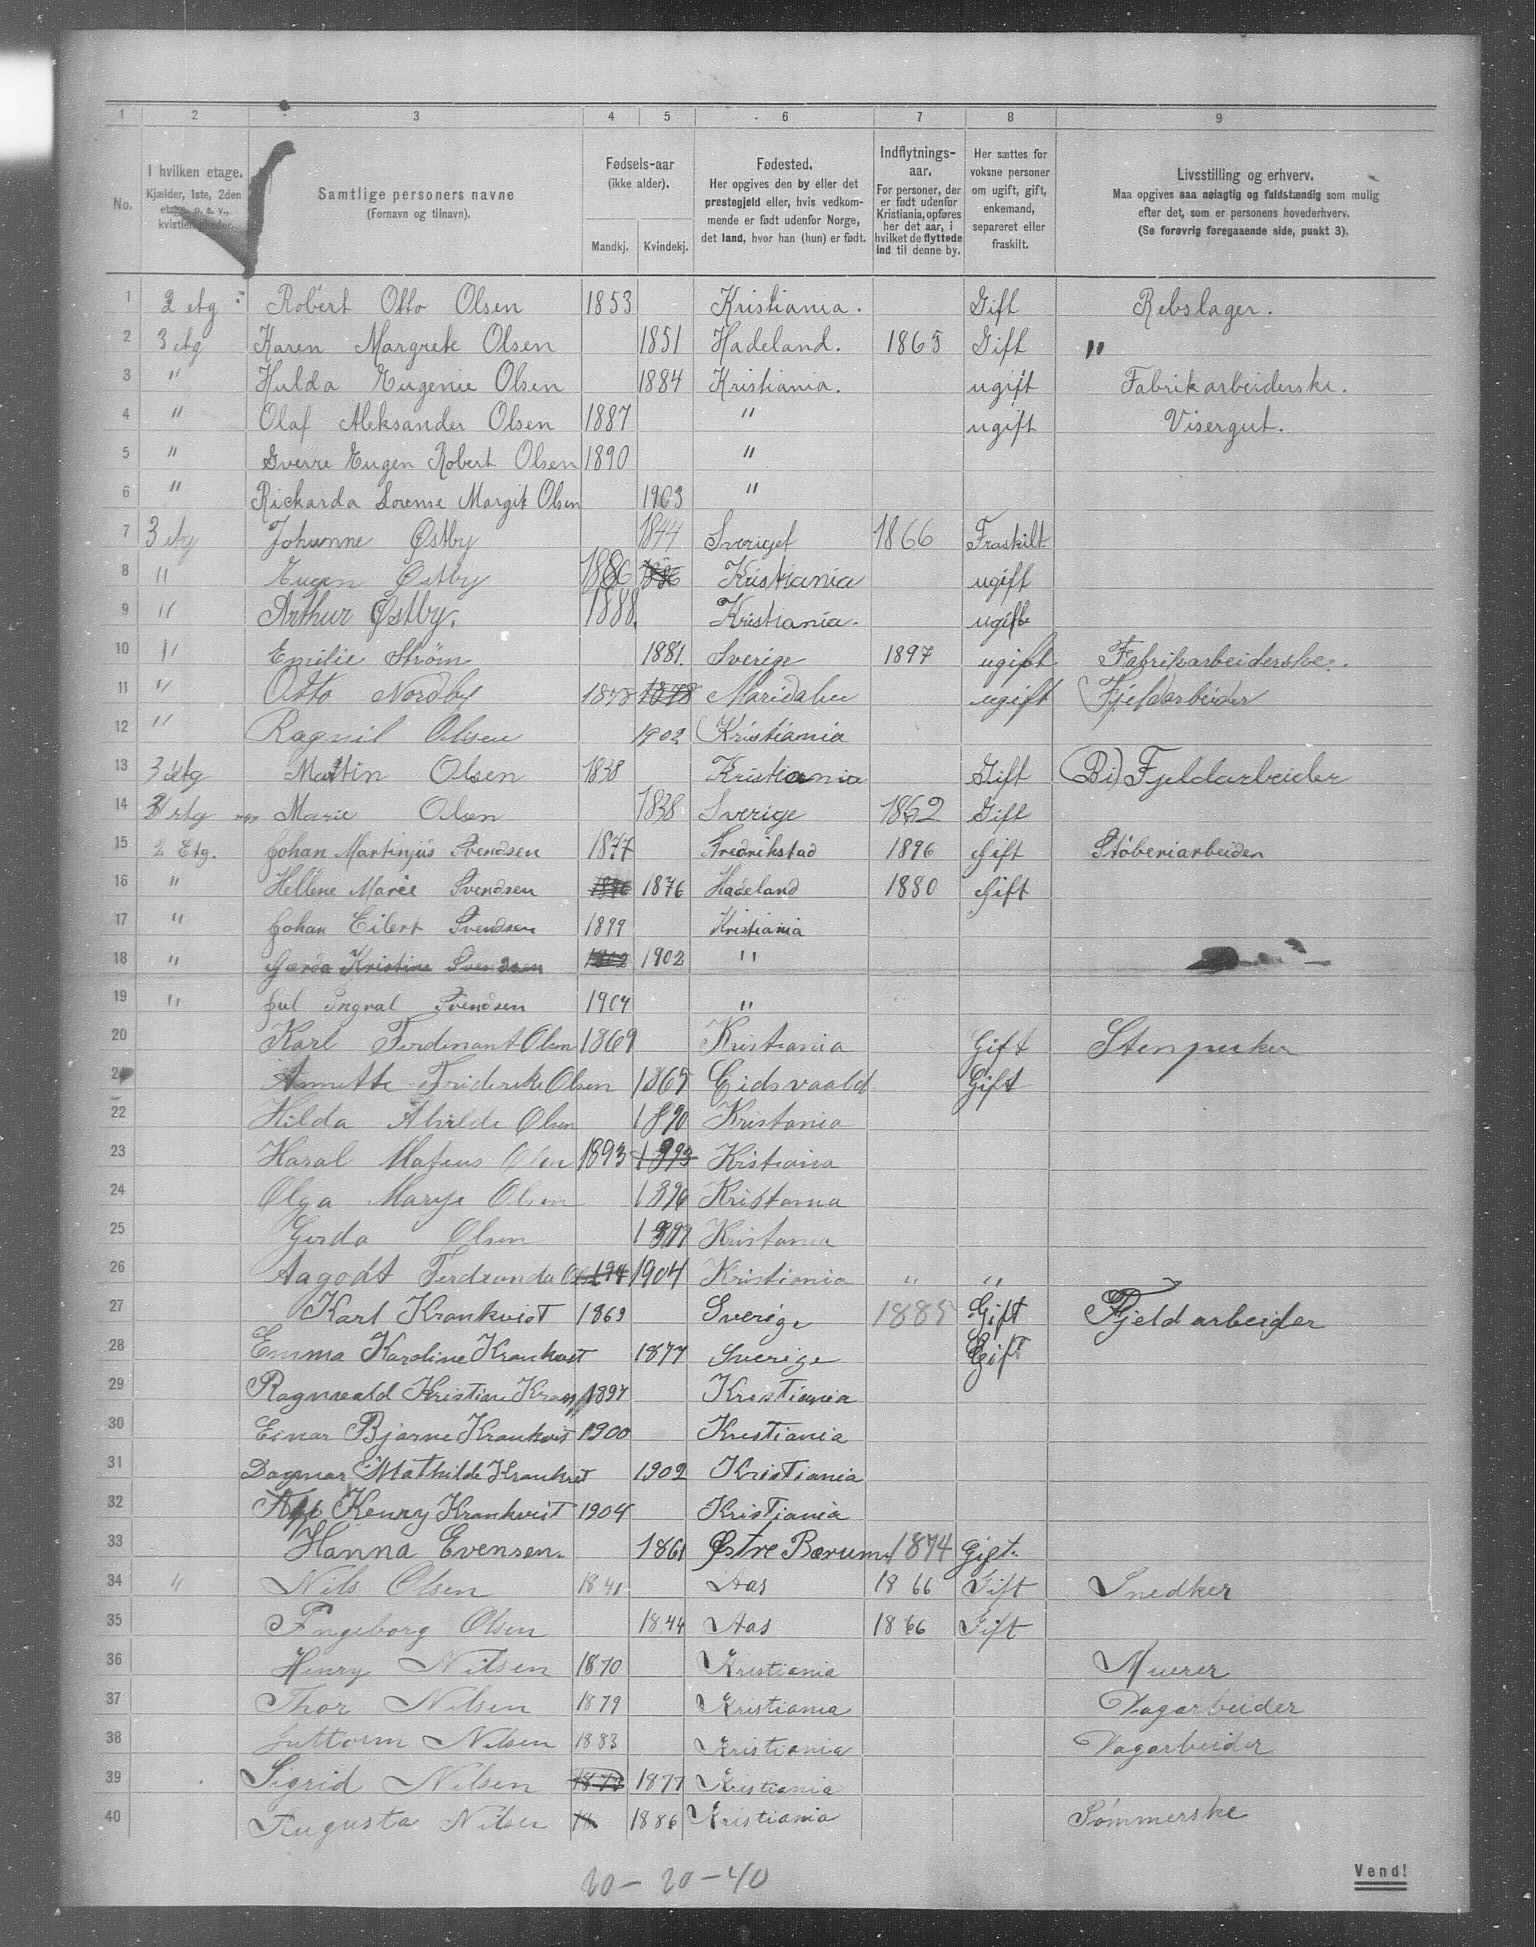 1 2 3 4 5 6 7 8 9
No. I hvilken etage. Kjælder, 1ste, 2den etage, o. s. v., kvistleiligheder. Samtlige personers navne (Fornavn og tilnavn). Fødsels-aar (ikke alder). Mandkj. Kvindekj. Fødested. Her opgives den by eller det prestegjeld eller, hvis vedkommende er født udenfor Norge, det land, hvor han (hun) er født. Indflytnings-aar. For personer, der er født udenfor Kristiania, opføres her det aar, i hvilket de flyttede ind til denne by. Her sættes for voksne personer om ugift, gift, enkemand, separeret eller fraskilt. Livsstilling og erhverv. Maa opgives saa nøiagtig og fuldstændig som mulig efter det, som er personens hovederhverv. (Se forøvrig foregaaende side, punkt 3).
1 2 etg Robert Otto Olsen 1853 Kristiania. Gift Rebslager.
2 3 etg Karen Margrete Olsen 1851 Hadeland. 1865 Gift "
3 " Hulda Eugenie Olsen 1884 Kristiania. ugift Fabrikarbeiderske.
4 " Olaf Aleksander Olsen 1887 " ugift Visergut.
5 " Sverre Eugen Robert Olsen 1890 "
6 " Rickarda Lorense Margit Olsen 1903 "
7 3 etg Johanne Østby 1844 Sveriget 1866 Fraskilt.
8 " Eugen Østby 1886 1886 Kristiania ugift
9 " Arthur Østby. 1888. Kristiania. ugift
10 " Emilie Strøm 1881. Sverige 1897 ugift Fabrikarbeiderske.
11 " Otto Nordby 1878 1878 Maridalen ugift Fjeldarbeider
12 " Ragnil Olsen 1902 Kristiania
13 3 etg Martin Olsen 1838 Kristiania Gift (Bi) Fjeldarbeider
14 3 etg Marie Olsen 1838 Sverige 1862 Gift
15 2 Etg. Johan Martinjus Svendsen 1877 Fredrikstad 1896 Gift Støberiarbeider
16 " Hellene Marie Svendsen 1876 1876 Hadeland 1880 Gift
17 " Johan Eilert Svendsen 1899 Kristiania
18 " Gærda Kristine Svendsen 1902 1902 "
19 " Jul Ingval Svendsen 1904 "
20 Karl Ferdinant Olsen 1869 Kristiania Gift Stenpukker
21 Annette Friderike Olsen 1865 Eidsvaald Gift
22 Hilda Alvilde Olsen 1890 Kristania
23 Haral Mateus Olsen 1893 1893 Kristiana
24 Olga Marye Olsen 1896 Kristania
25 Gerda Olsen 1899 Kristania
26 Aagodt Ferdranda Ols 194 1904 Kristiania " "
27 Karl Krankvist 1869 Sverige 1885 Gift Fjeldarbeider
28 Emma Karoline Krankvist 1877 Sverige Gift
29 Ragnvald Kristian Kran 1897 Kristiania
30 Einar Bjarne Krankvist 1900 Kristiania
31 Dagmar Mathilde Krankvist 1902 Kristiania
32 Henry Krankvist 1904 Kristiania
33 Hanna Evensen. 1861 Østre Bærum. 1874 Gift.
34 " Nils Olsen 1841 Aas 1866 Gift Snedker
35 Ingeborg Olsen 1844 Aas 1866 Gift
36 Henry Nilsen 1870 Kristiania Murer
37 Thor Nilsen 1879 Kristiania Dagarbeider
38 Guttorm Nilsen 1883 Kristiania Dagarbeider
39 Sigrid Nilsen 1877 1877 Kristiania
40 Augusta Nilsen 18 1886 Kristiania Sömmerske
20 – 20 – 40
Vend!